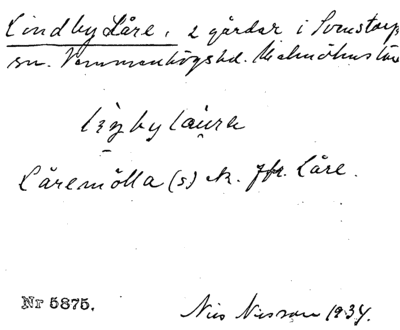 Lindby Låre, 2 gårdar i Svenstorps
sn. Vemmenhögs hd. Malmöhus län
Låremölla (s) ik. Jfr. Låre.
Nr 5875.
Nils Nilsson 1934.